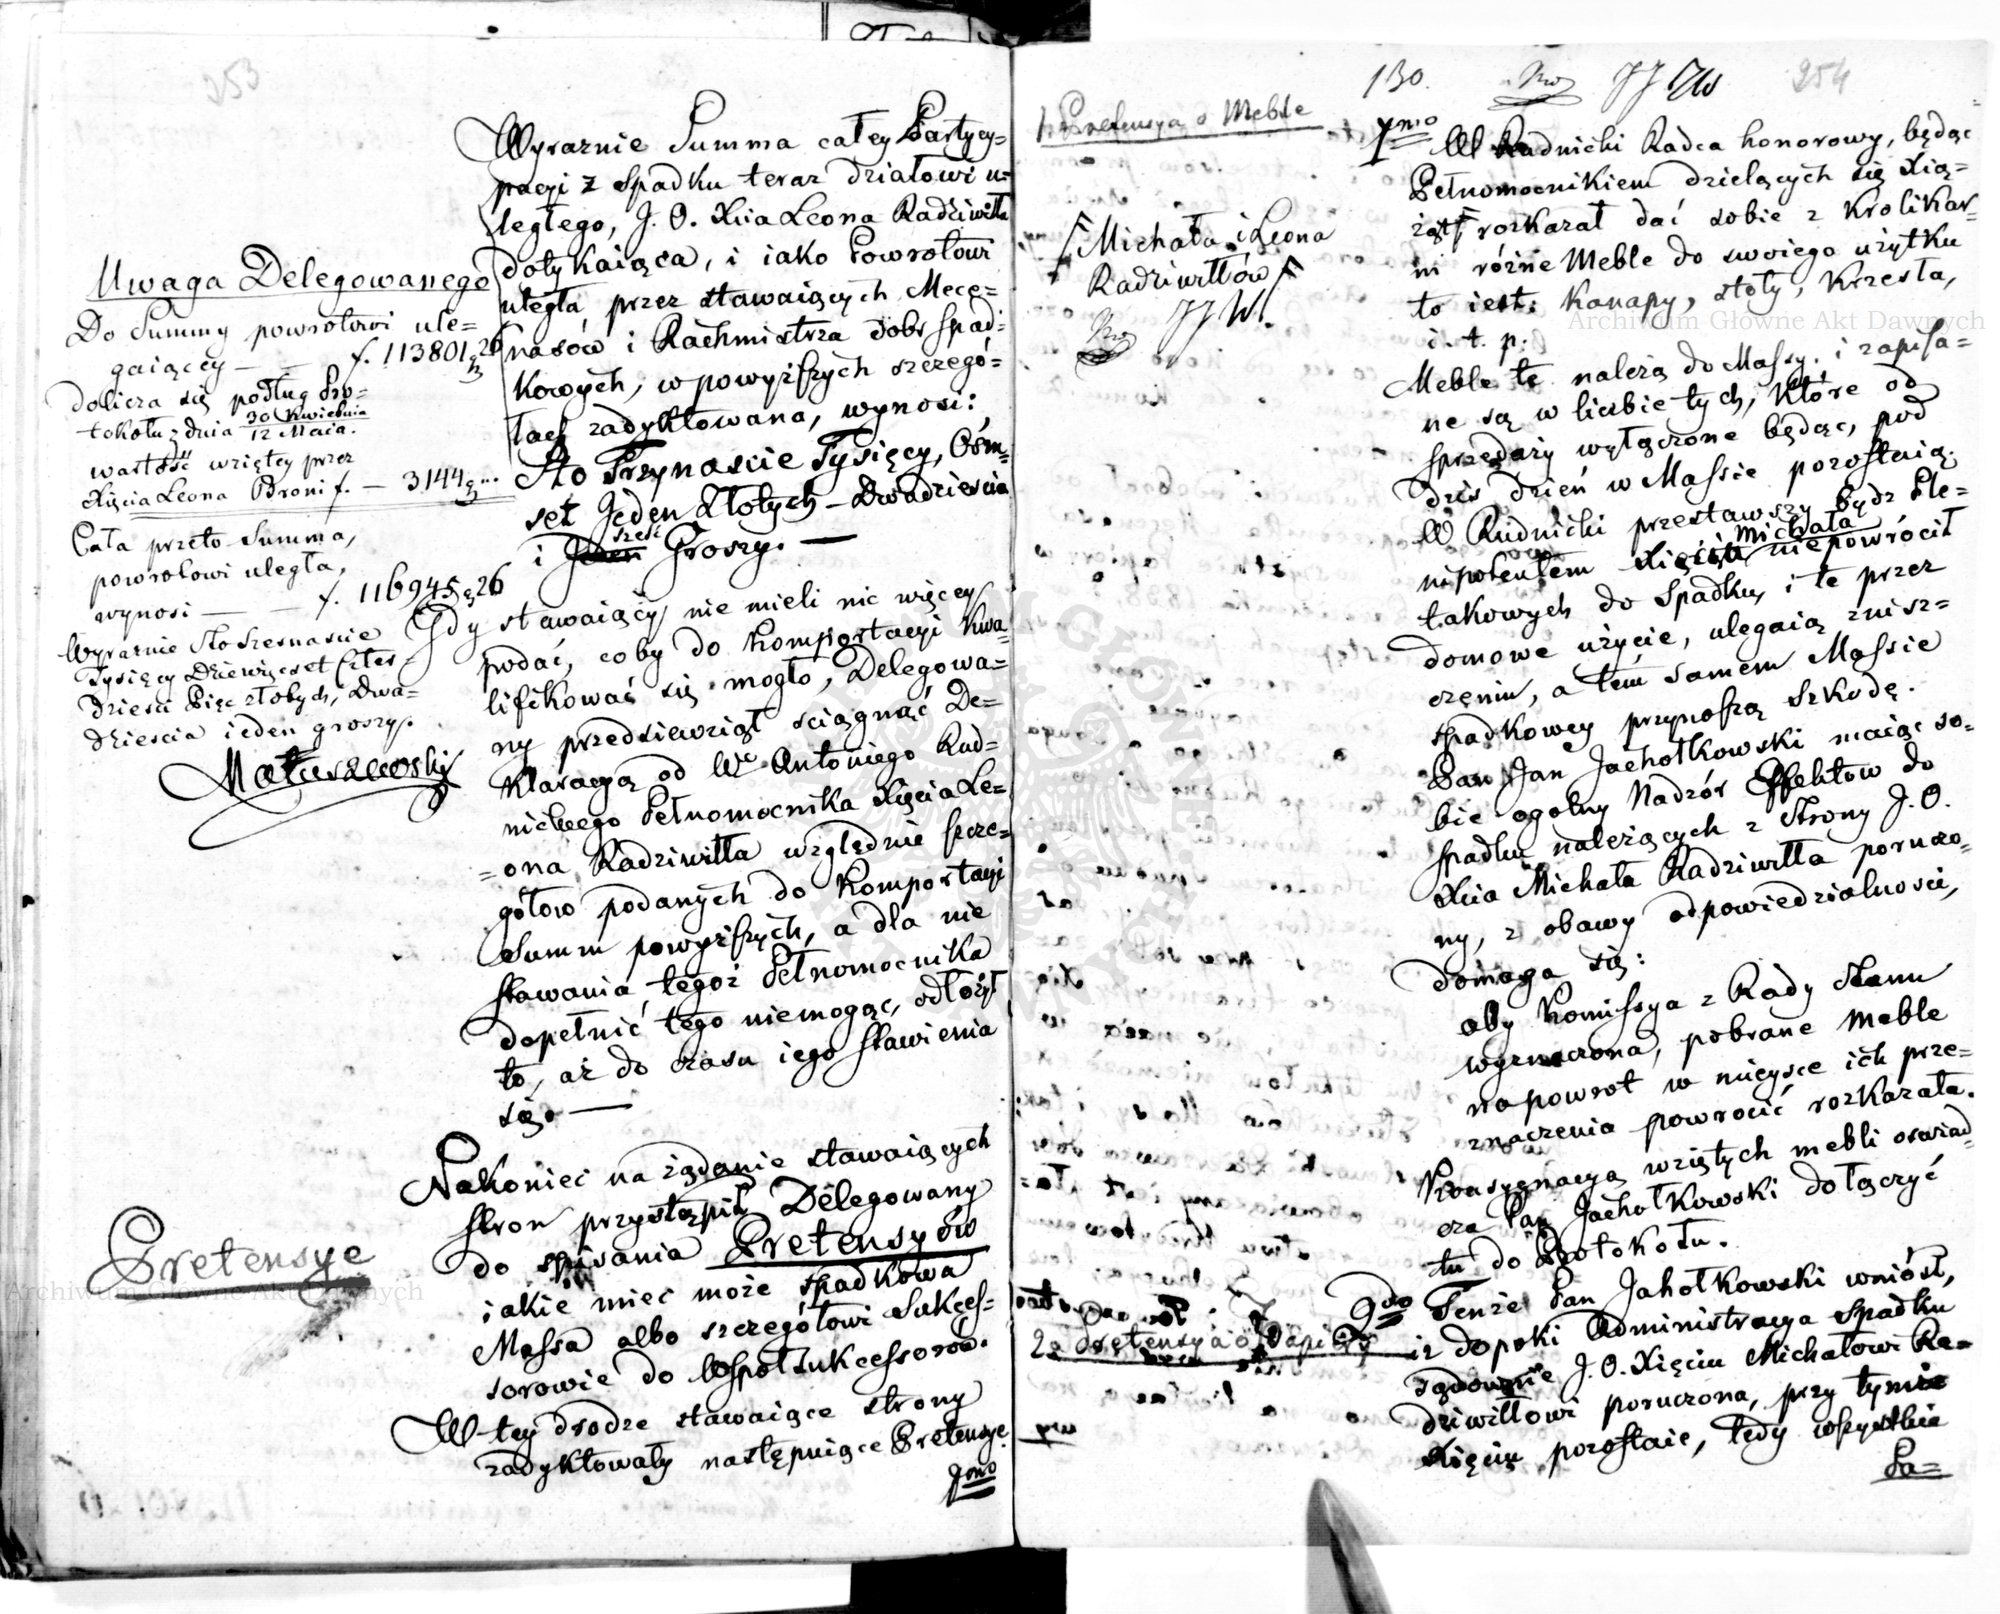 253
Uwaga Delegowanego
Do Summy powrotowi ule=
gaiącey — — f. 113801 g 26
dolicza się podług Pro=
tokułu z dnia 30 Kwietnia
12 Maia.
wartość wziętey przez
Xięcia Leona Broni f. — 3144 g „.
Cała przeto Summa,
powrotowi uległa,
wynosi — — f. 116945 g 26
Wyraznie Sto Szesnascie
Tysięcy Dziewięćset Czter=
dzieści Pięć złotych, Dwa=
dzieścia ieden groszy.
Matuszewski
Pretensye
Wyraznie Summa całey Partycy=
pacyi z Spadku teraz działowi u=
ległego, J. O. Xcia Leona Radziwiłła
dotykaiąca, i iako Powrotowi
uległa przez stawaiących Mece=
nasów i Rachmistrza dobr spad=
kowych, w powyższych szczegó=
łach zadyktowana, wynosi:
Sto Trzynascie Tysięcy, Ośm=
set Jeden Złotych — Dwadzieścia
sześć
i Jeden Groszy. —
Gdy stawaiący nie mieli nic więcey
podać, coby do Komportacyi kwa=
lifikować się mogło, Delegowa=
ny przedsiewziął sciągnąć De=
klaracyą od We Antoniego Rud=
nickiego Pełnomocnika Xięcia Le=
=ona Radziwiłła względnie szcze=
gołow podanych do Komportacyi
Summ powyższych, a dla nie
stawania tegoż Pełnomocnika
dopełnić tego niemogąc, odłożył
to, aż do czasu iego stawienia
się. —
Nakoniec na żądanie stawaiących
stron przystąpił Delegowany
do spisania Pretensyów
iakie mieć może spadkowa
Massa albo szczegółowi Sukces=
sorowie do Wspołsukcessorów.
W tey drodze stawaiące strony
zadyktowały następuiące Pretensye.
1mo
130.
254
1. Pretensya o Meble
Michała i Leona
Radziwiłłów
JJW.
1mo
W Rudnicki Radca honorowy, będąc
Pełnomocnikiem dzielących się Xią=
żąt rozkazał dać sobie z Krolikar=
ni różne Meble do swoiego użytku
to iest: Kanapy, stoły, krzesła,
i. t. p.
Meble te należą do Massy, i zapisa=
ne są w liczbie tych, które od
sprzedaży wyłączone będąc, pod
dziś dzień w Massie pozostaią.
W Rudnicki przestawszy bydź Ple=
Michała
nipotentem Xięcia niepowrócił
takowych do Spadku, i te przez
domowe użycie, ulegaią znisz=
czeniu, a tém samem Massie
spadkowey przynoszą szkodę.
Pan Jan Jachołkowski maiąc so=
bie ogolny Nadzór Effektow do
spadku należących z Strony J. O.
Xcia Michała Radziwiłła poruczo=
ny, z obawy odpowiedzialnosci,
domaga się:
aby Komissya z Rady Stanu
wyznaczona, pobrane meble
na powrot w mieysce ich prze=
znaczenia powrócić rozkazała.
Konsygnacyą wziętych mebli oswiad=
cza Pan Jachołkowski dołączyć
tu do Protokołu.
2do
2a Pretensya o Papiery
Tenże Pan Jahołkowski wniósł,
iż dopóki Administracya Spadku
sądownie J. O. Xięciu Michałowi Ra=
dziwiłłowi poruczona, przy tymże
Xięciu pozostaie, tedy wszystkie
Pa=
Archiwum Główne Akt Dawnych
Archiwum Główne Akt Dawnych